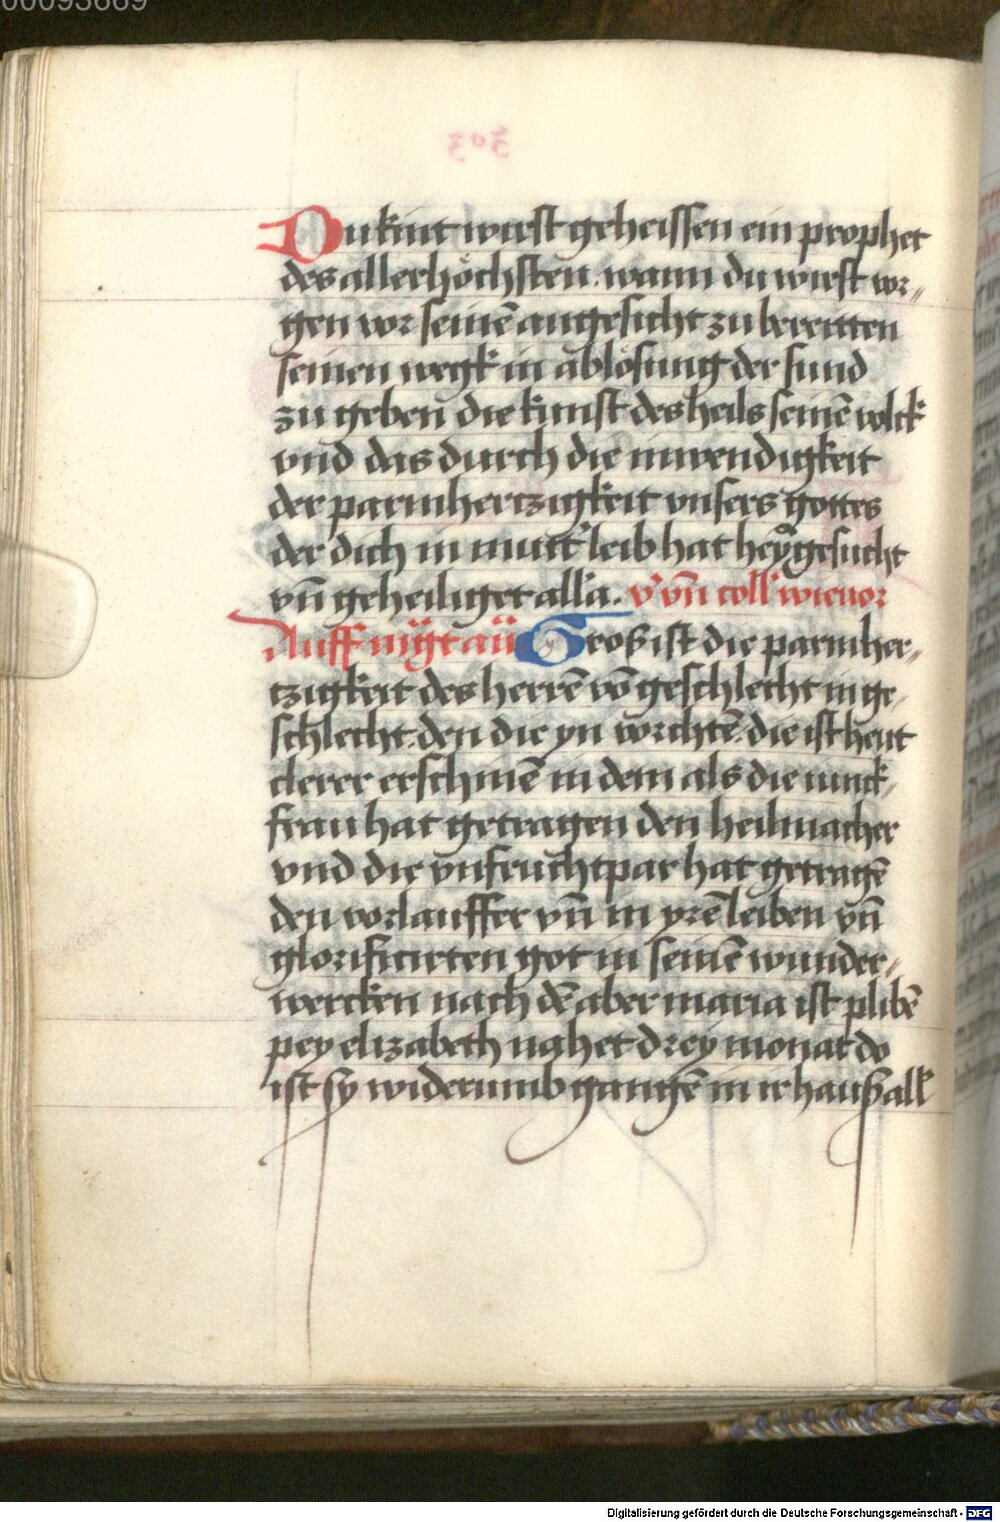 00093669
Du kint wirst geheissen ein prophet
des allerhöchsten. wann du wirst vor⸗
gen vor seinē angesicht zu bereitten
seinen wegk in ablösung der sund
zu geben die kunst des heils seinē volck
vnd das durch die inwendigkeit
der parmhertzigkeit vnsers gottes
der dich in mutt' leib hat heỹgesucht
vn̄ geheiliget all'a. v' vn̄ coll' wie vor
Auff mḡt an̄ Groß ist die parmher⸗
tzigkeit des herrē vō geschlecht in ge⸗
schlecht. den die yn vorchtē. die ist heut
clerer erschinē in dem als die iunck⸗
frau hat getragen den heilmacher
vnd die vnfruchtpar hat getragē
den vorlauffer vn̄ in yrē leiben vn̄
glorificirten got in seinē wunder⸗
wercken nach dē aber maria ist plibē
pey elizabeth nahet drey monat do
ist sy widerumb gangē in ir hauß all'
Digitalisierung gefördert durch die Deutsche Forschungsgemeinschaft - DFG